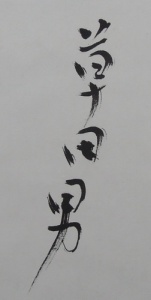 草田男